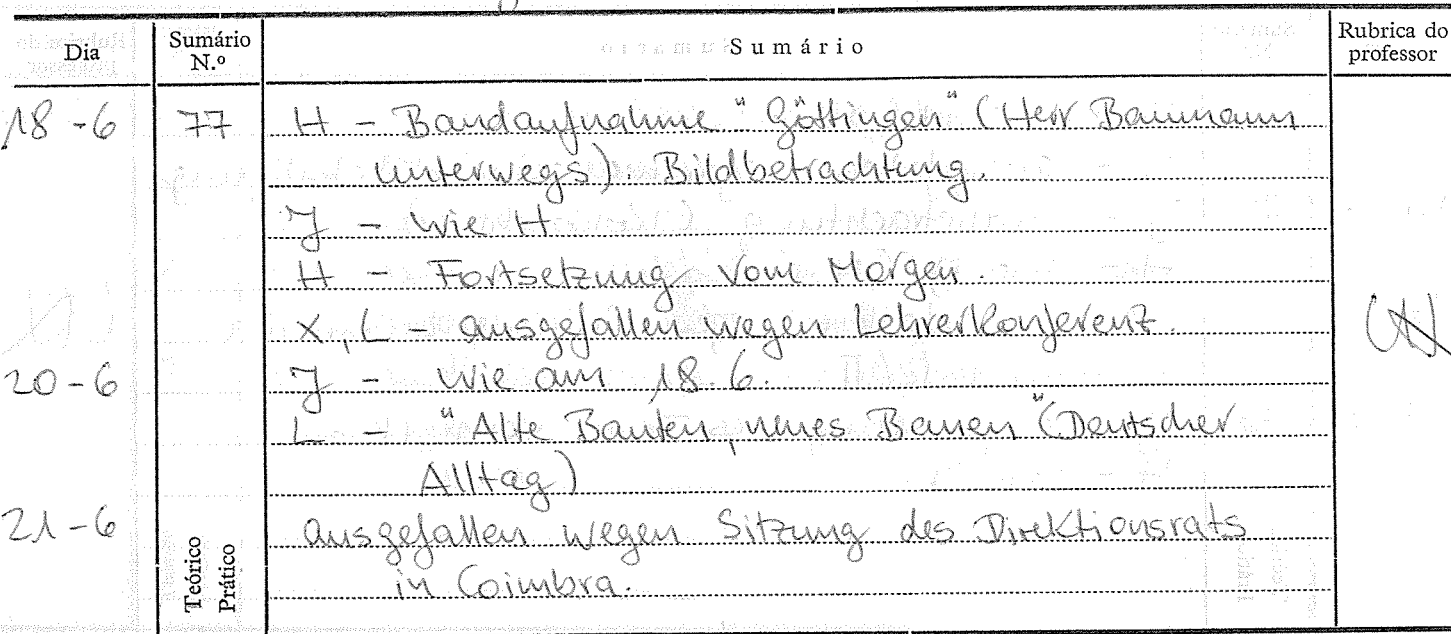 Dia Sumário N.º Sumário Rubrica do professor
18-6 77 H - Bandaufnahme "Göttingen" (Herr Baumann
unterwegs) Bildbetrachtung.
J - Wie H
H - Fortsetzung vom Morgen.
X, L - ausgefallen wegen Lehrerkonferenz.
20-6 J - Wie am 18.6.
L - "Alte Bauten, neues Bauen" (Deutscher
Alltag)
21-6 ausgefallen wegen Sitzung des Direktionsrats
in Coimbra.
Teórico
Prático